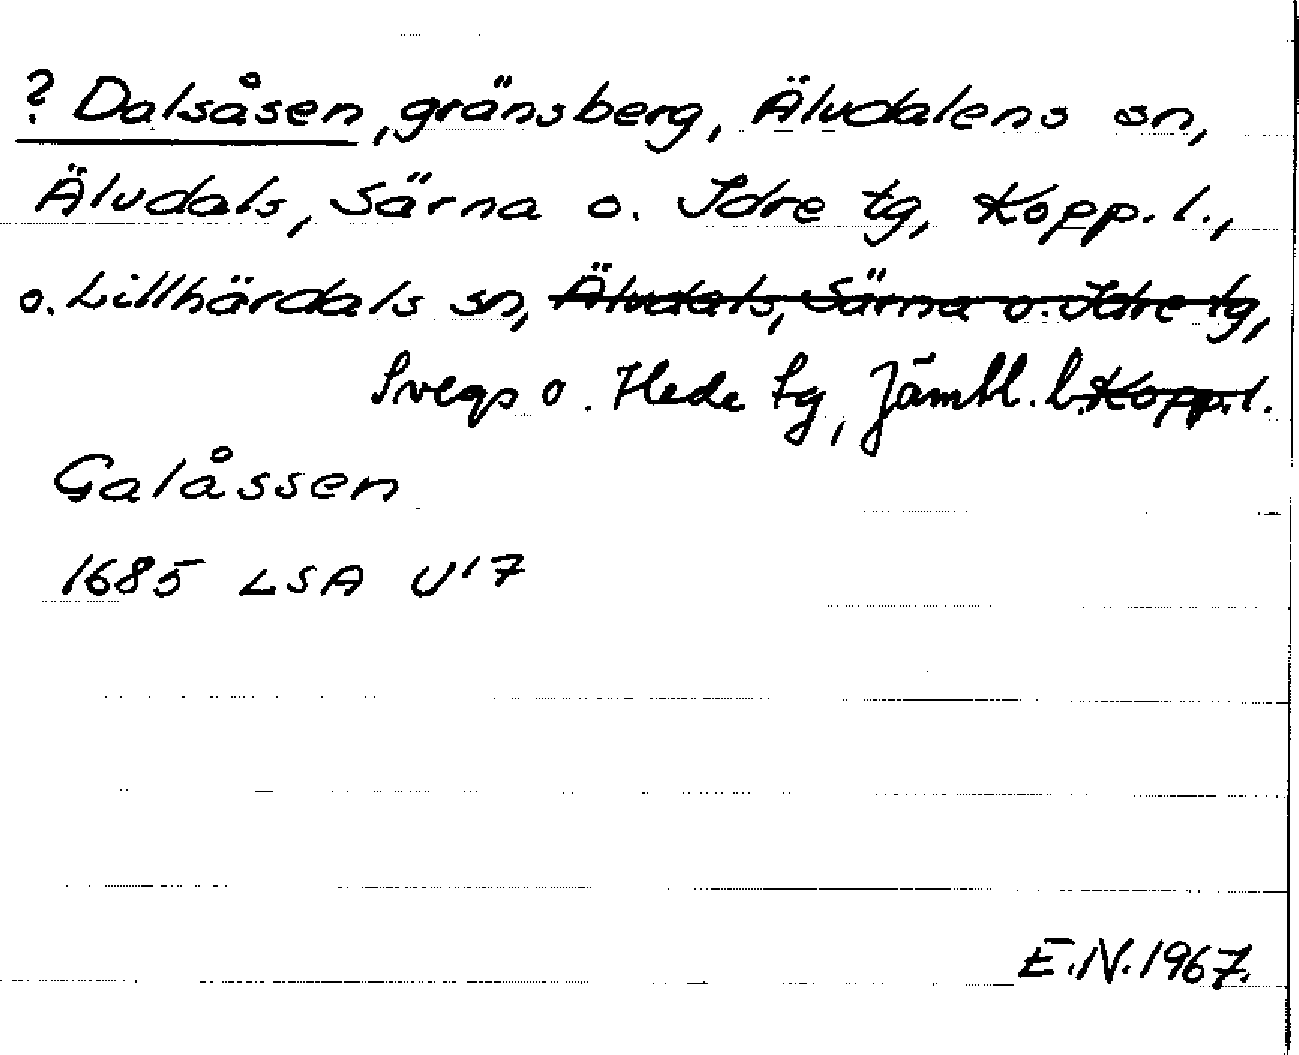 ? Dalsåsen, gränsberg, Älvdalens sn,
Älvdals, Särna o. Idre tg, Kopp. l.,
o. Lillhärdals sn, Älvdals, Särna o. Idre tg,
Svegs o. Hede tg, Jämtl. l. Kopp. l.
Galåssen
1685 LSA U17
E.N. 1967.